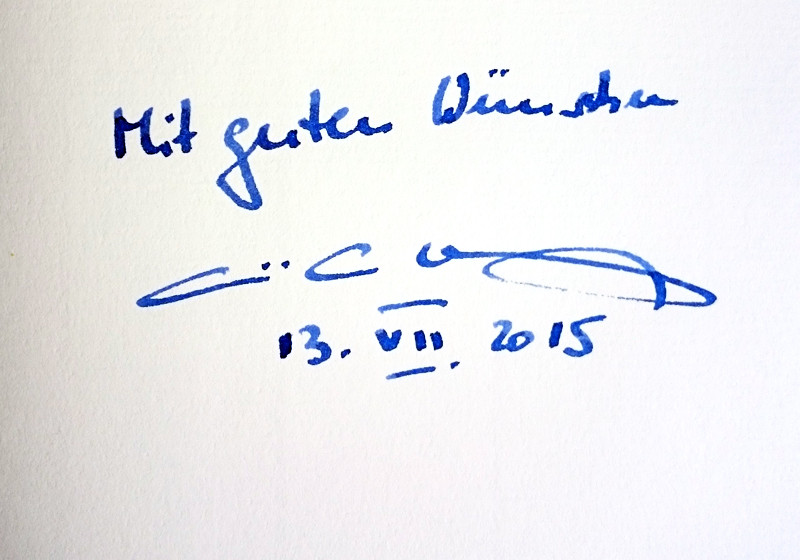 Mit guten Wünschen
13. VII. 2015